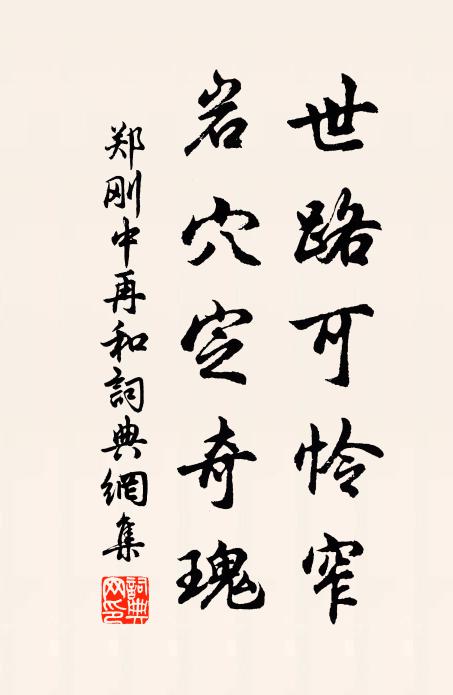 世路可怜窄
岩穴定奇瑰
郑刚中再和詞典網集
詞典網印